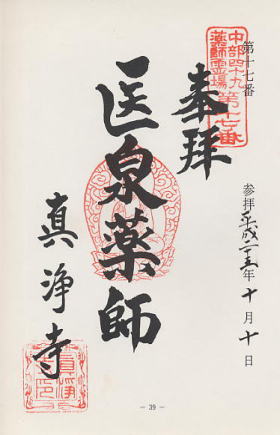 第十七番
中部四十九
薬師霊場
第十七番
奉拝
参拝平成二五年十月十日
医泉薬師
真浄寺
- 39 -